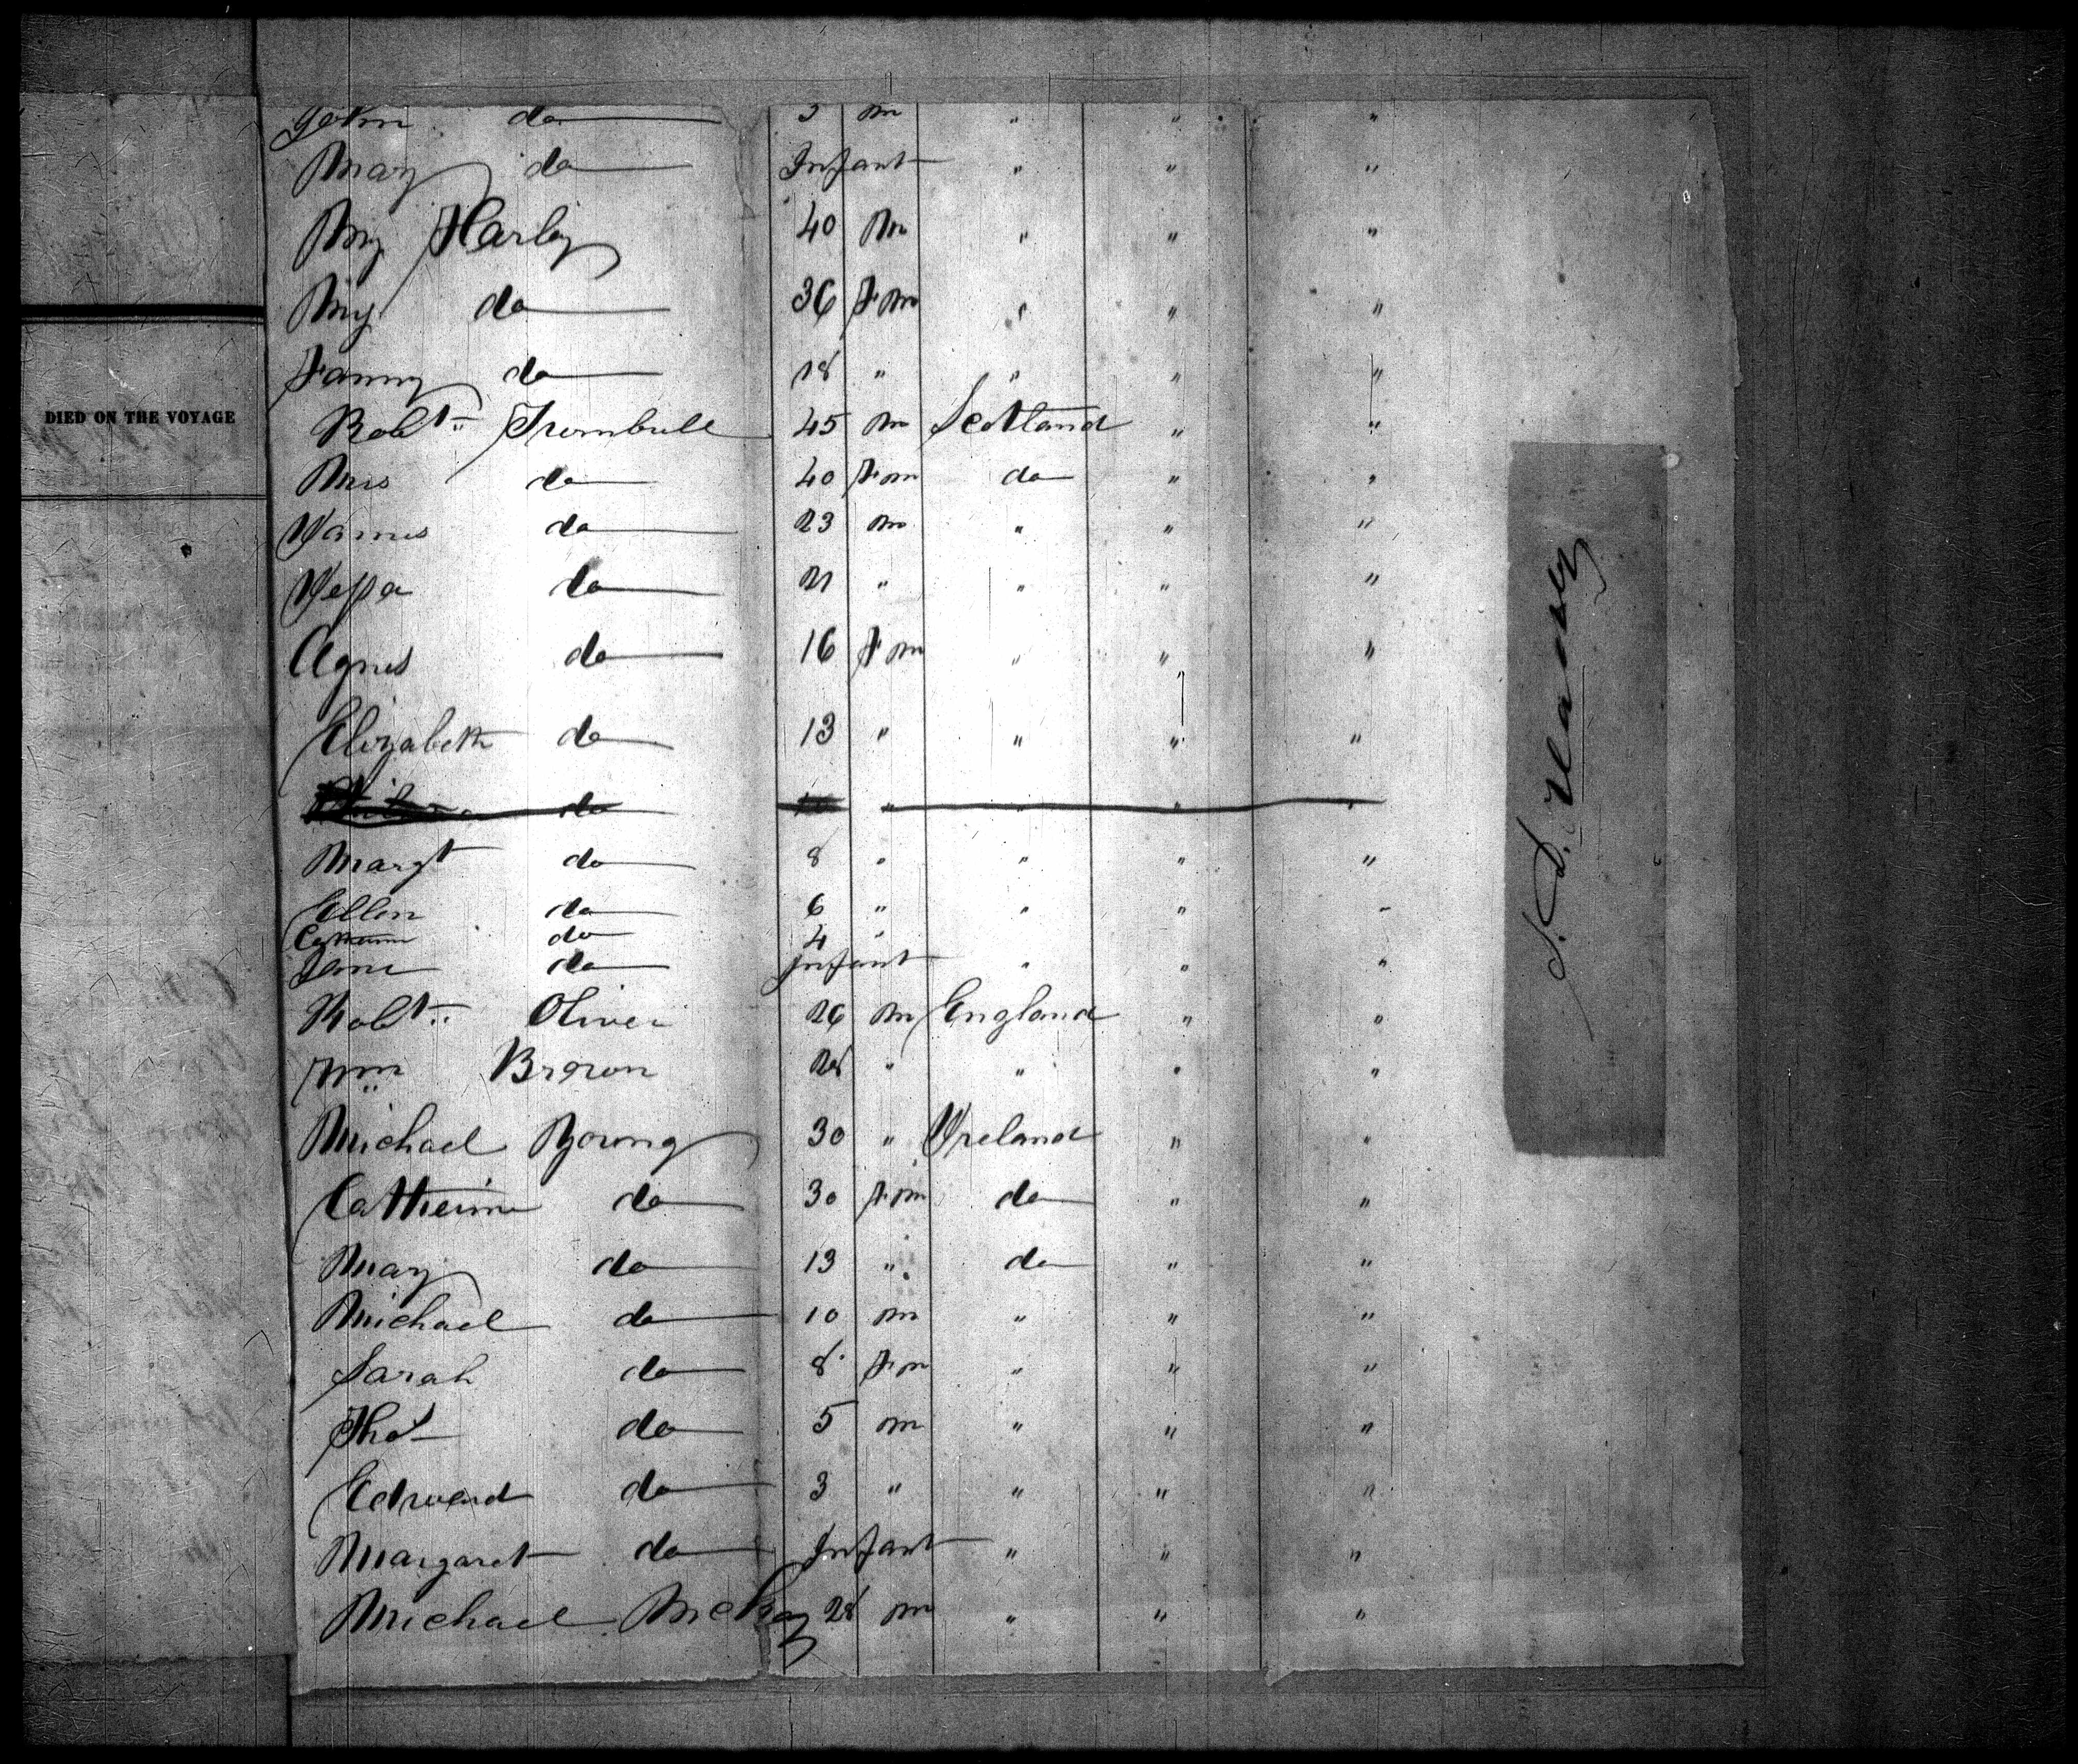 DIED ON THE VOYAGE
John do 3 m " " "
Mary do Infant " " "
My Harley 40 m " " "
My do 36 Fm " " "
Fanny do 18 " " " "
Robt. Trumbull 45 m Scotland " "
Mrs do 40 Fm do " "
James do 23 m " " "
do 21 " " " "
Agnes do 16 Fm " " "
Elizabeth do 13 " " " "
do " " " "
Margt do 8 " " " "
Ellen do 6 " " " "
do 4 "
Jane do Infant " " "
Robt. Oliver 26 m England " "
Wm Brown 28 " " " "
Michael Young 30 " Ireland " "
Catherine do 30 Fm do " "
Mary do 13 " do " "
Michael do 10 m " " "
Sarah do 8 Fm " " "
Thos do 5 m " " "
Edward do 3 " " " "
Margaret do Infant " " "
Michael McKay 28 m " " "